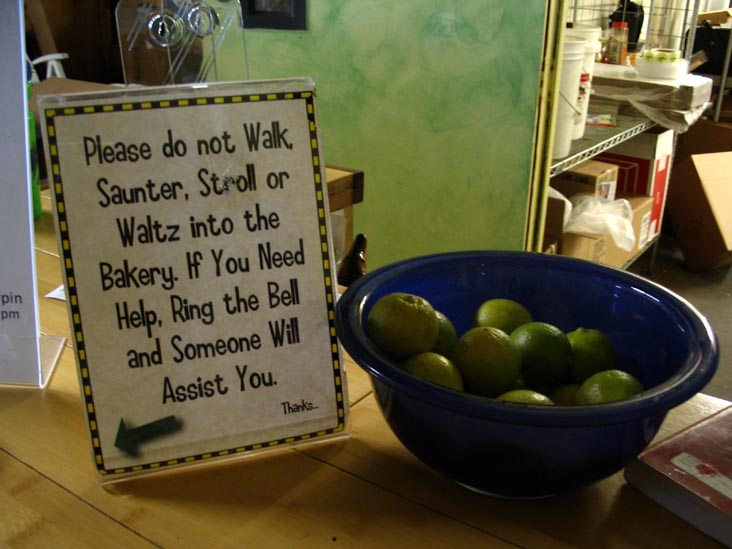 Please do not Walk,
Saunter, Stroll or
Waltz into the
Bakery. If You Need
Help, Ring the Bell
and Someone Will
Assist You.
Thanks...
pin
pm